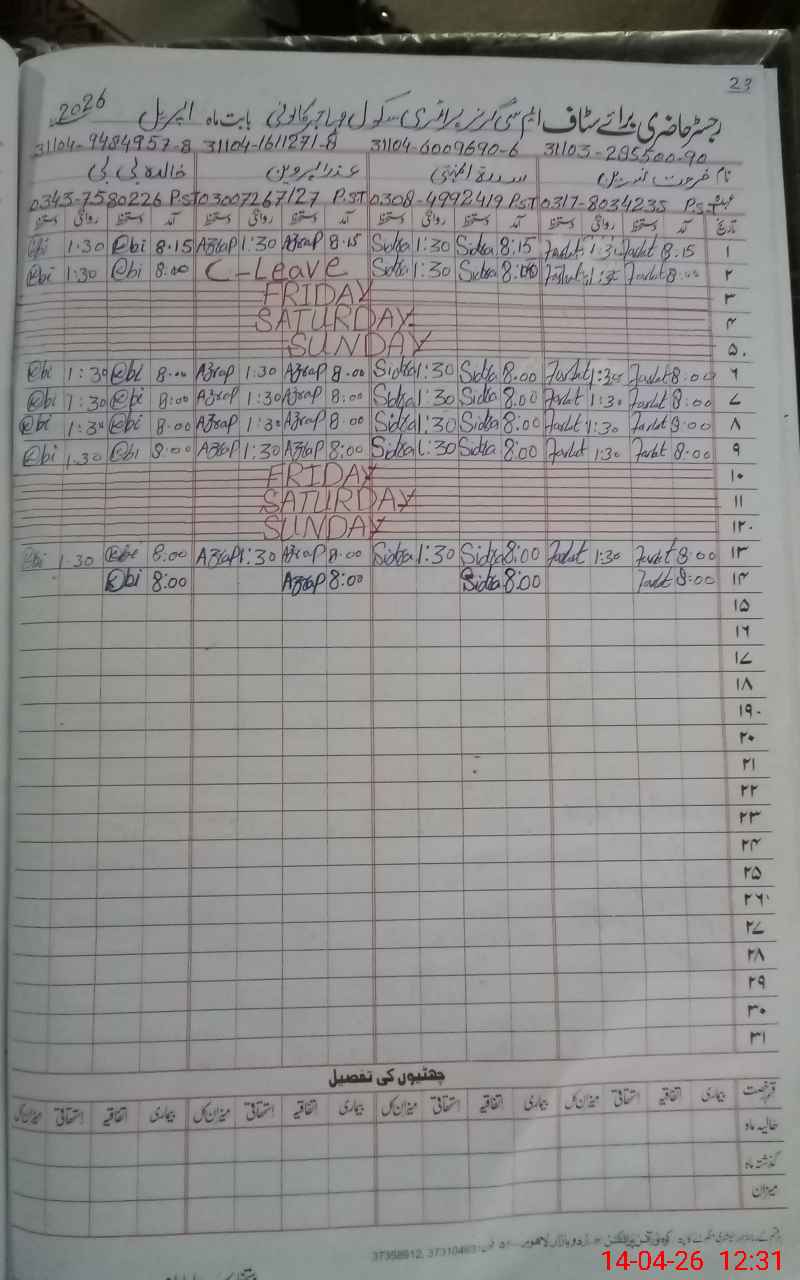 23
رجسٹر حاضری برائے سٹاف ایم سی گرلز پرائمری سکول مہاجر کالونی بابت ماہ اپریل 2026
31104-9484957-8 31104-1611271-8 31104-6009690-6 31103-285500-90
نام فرحت نسرین سدرۃ المنتہیٰ عذرا پروین خالدہ بی بی
0343-7580226 P.ST 03007267127 P.ST 0308-4992419 P.ST 0317-8034235 P.S.T
تاریخ آمد دستخط روانگی دستخط آمد دستخط روانگی دستخط آمد دستخط روانگی دستخط آمد دستخط روانگی دستخط
@bi 1.30 @bi 8.15 Azrap 1:30 Azrap 8.15 Sidra 1:30 Sidra 8:15 Farhat 1:30 Farhat 8.15 ۱
@bi 1:30 @bi 8:00 C-Leave Sidra 1:30 Sidra 8:00 Farhat 1:30 Farhat 8:00 ۲
FRIDAY ۳
SATURDAY ۴
SUNDAY ۵
@bi 1:30 @bi 8.00 Azrap 1:30 Azrap 8.00 Sidra 1:30 Sidra 8.00 Farhat 1:30 Farhat 8:00 ۶
@bi 1:30 @bi 8:00 Azrap 1:30 Azrap 8:00 Sidra 1:30 Sidra 8:00 Farhat 1:30 Farhat 8:00 ۷
@bi 1:30 @bi 8.00 Azrap 1:30 Azrap 8.00 Sidra 1:30 Sidra 8:00 Farhat 1:30 Farhat 8:00 ۸
@bi 1.30 @bi 8:00 Azrap 1:30 Azrap 8:00 Sidra 1:30 Sidra 8:00 Farhat 1:30 Farhat 8:00 ۹
FRIDAY ۱۰
SATURDAY ۱۱
SUNDAY ۱۲
@bi 1.30 @bi 8:00 Azrap 1:30 Azrap 8:00 Sidra 1:30 Sidra 8:00 Farhat 1:30 Farhat 8:00 ۱۳
@bi 8:00 Azrap 8:00 Sidra 8:00 Farhat 8:00 ۱۴
۱۵
۱۶
۱۷
۱۸
۱۹
۲۰
۲۱
۲۲
۲۳
۲۴
۲۵
۲۶
۲۷
۲۸
۲۹
۳۰
۳۱
چھٹیوں کی تفصیل
قسم رخصت بیماری اتفاقیہ استحقاقی میزان کل بیماری اتفاقیہ استحقاقی میزان کل بیماری اتفاقیہ استحقاقی میزان کل بیماری اتفاقیہ استحقاقی میزان کل
حالیہ ماہ
گذشتہ ماہ
میزان
اردو بازار لاہور
14-04-26 12:31